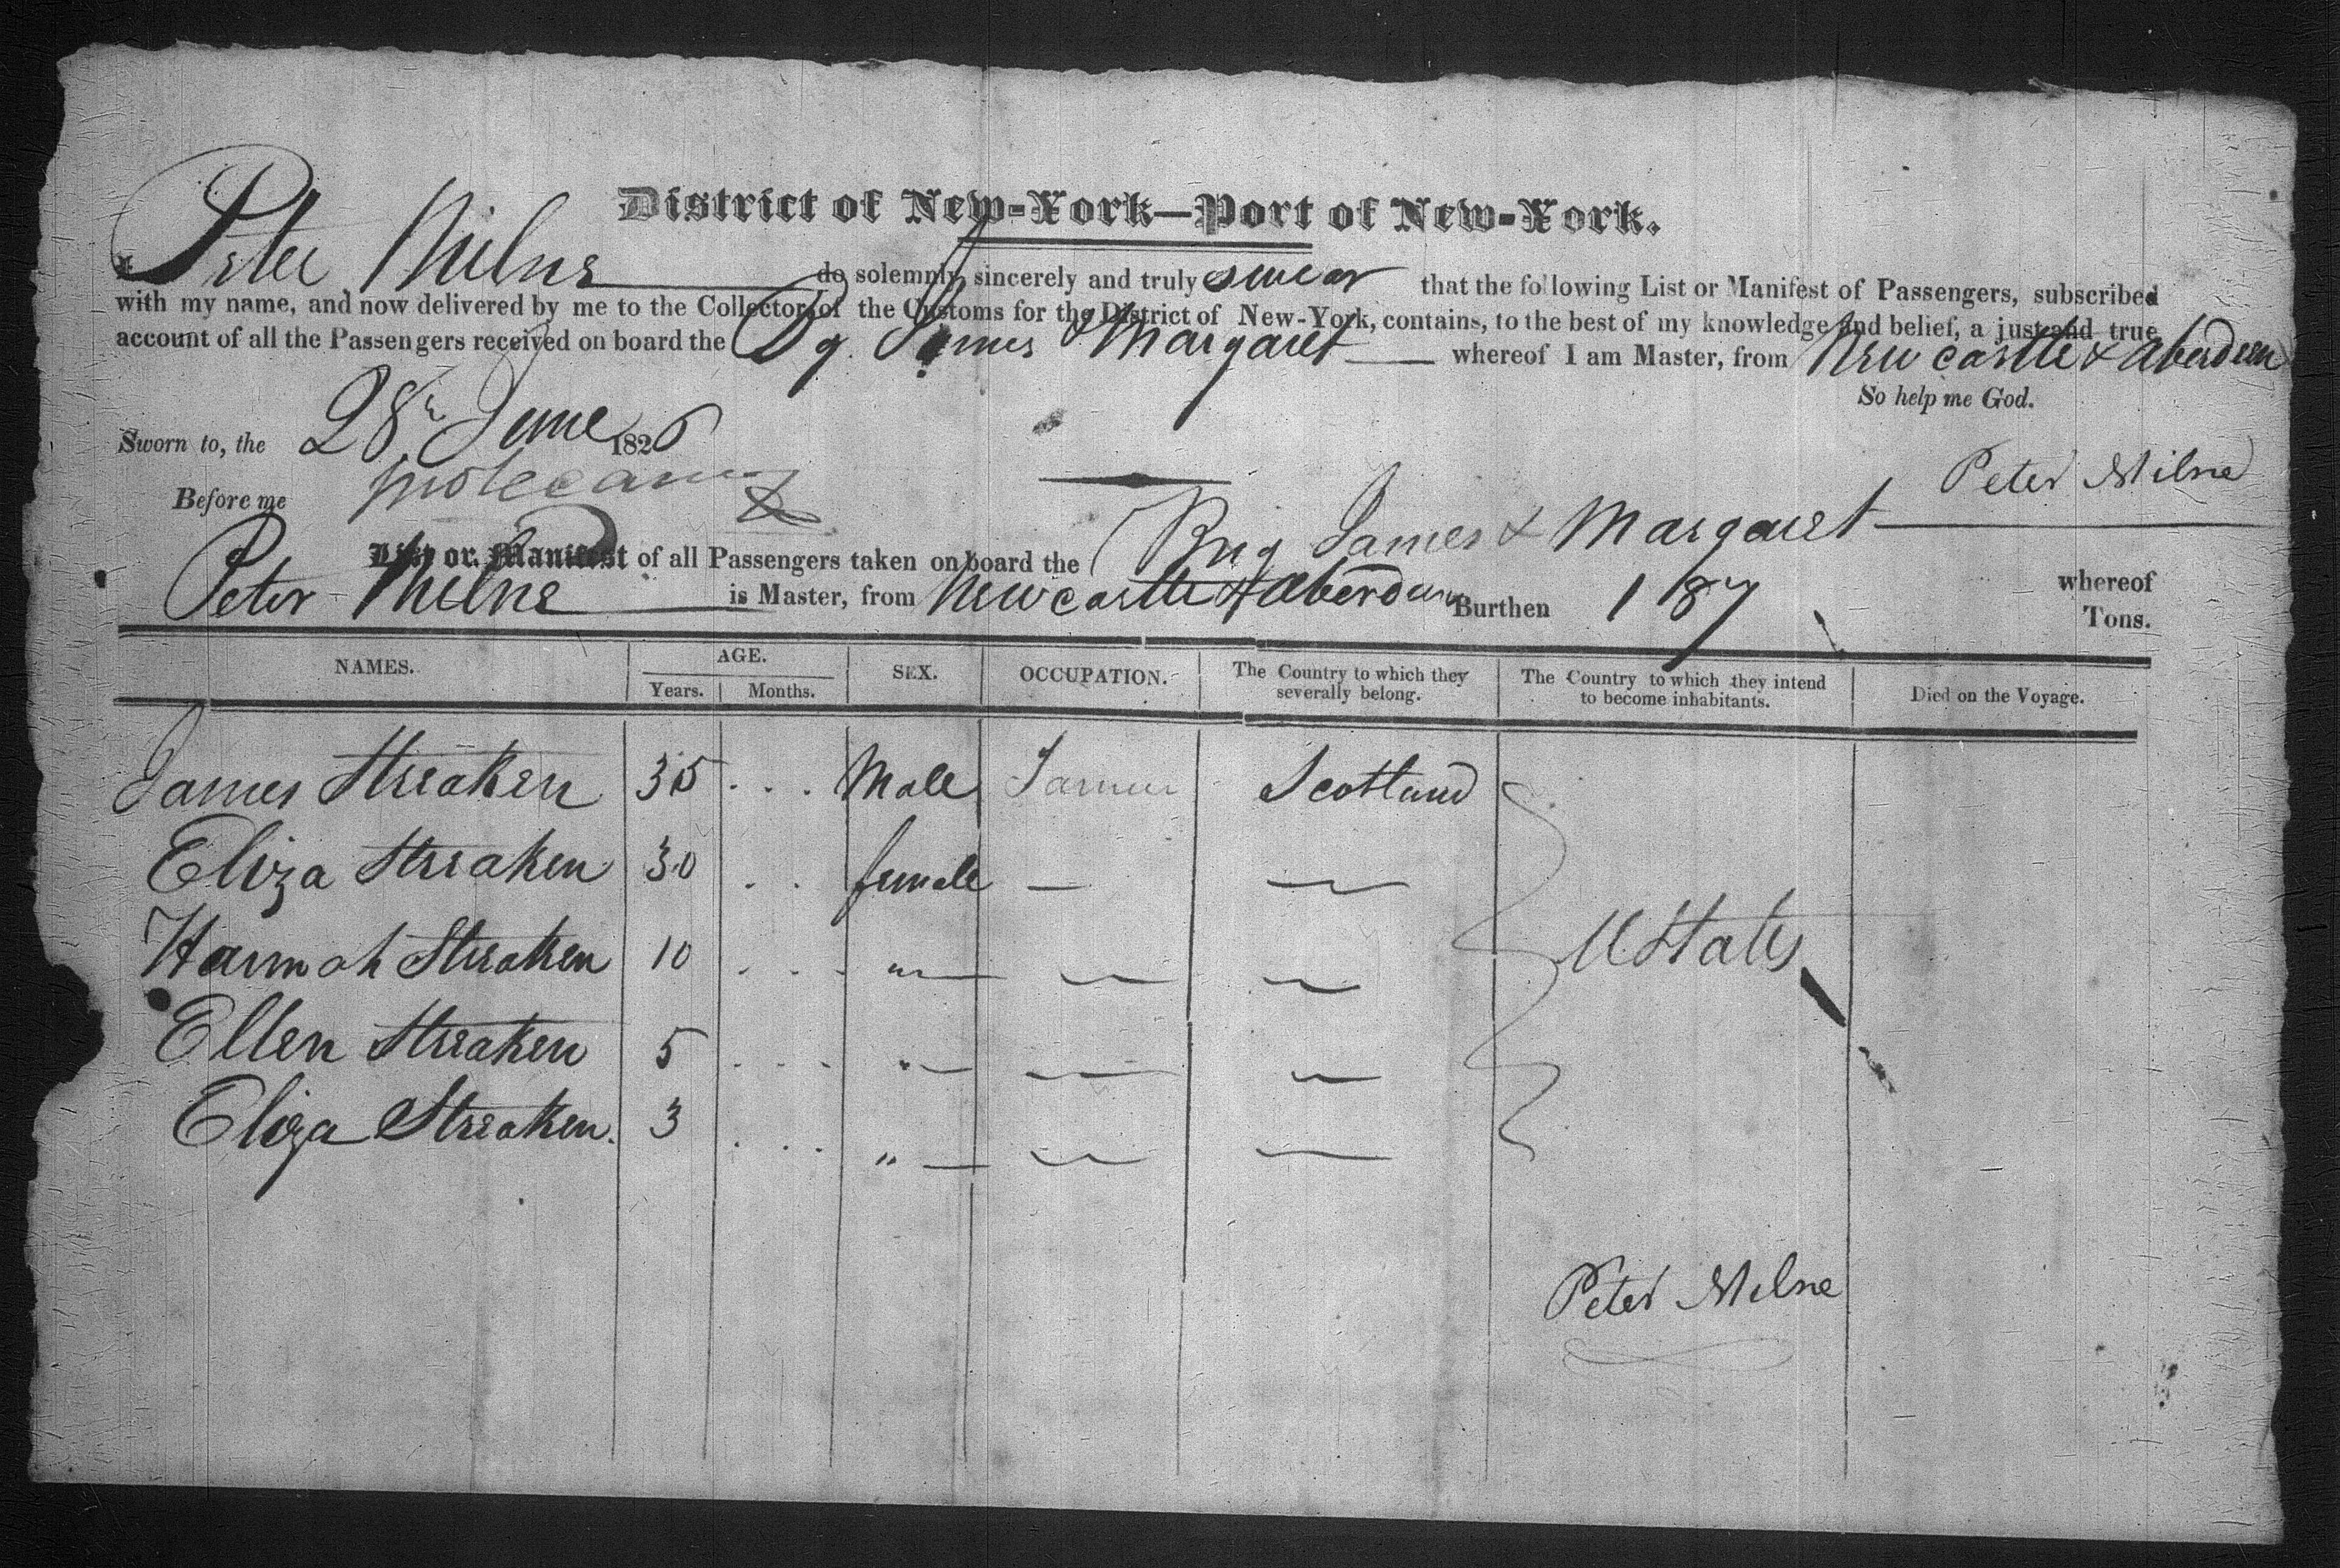 District of New-York—Port of New-York.
I Peter Milne do solemnly, sincerely and truly swear that the following List or Manifest of Passengers, subscribed
with my name, and now delivered by me to the Collector of the Customs for the District of New-York, contains, to the best of my knowledge and belief, a just and true
account of all the Passengers received on board the Bg. James & Margaret whereof I am Master, from New castle & Aberdeen
So help me God.
Sworn to, the 28th June 1826
Peter Milne
Before me
List or Manifest of all Passengers taken on board the Brig James & Margaret whereof
Peter Milne is Master, from Newcastle & Aberdeen Burthen 187 Tons.
NAMES. AGE. SEX. OCCUPATION. The Country to which they severally belong. The Country to which they intend to become inhabitants. Died on the Voyage.
Years. Months.
James Streaken 35 . . . Male Farmer Scotland
Eliza Streaken 30 . . female — —
Hannah Streaken 10 . . . " — — —
U States
Ellen Streaken 5 . . . " — — —
Eliza Streaken. 3 . . . " — — —
Peter Milne